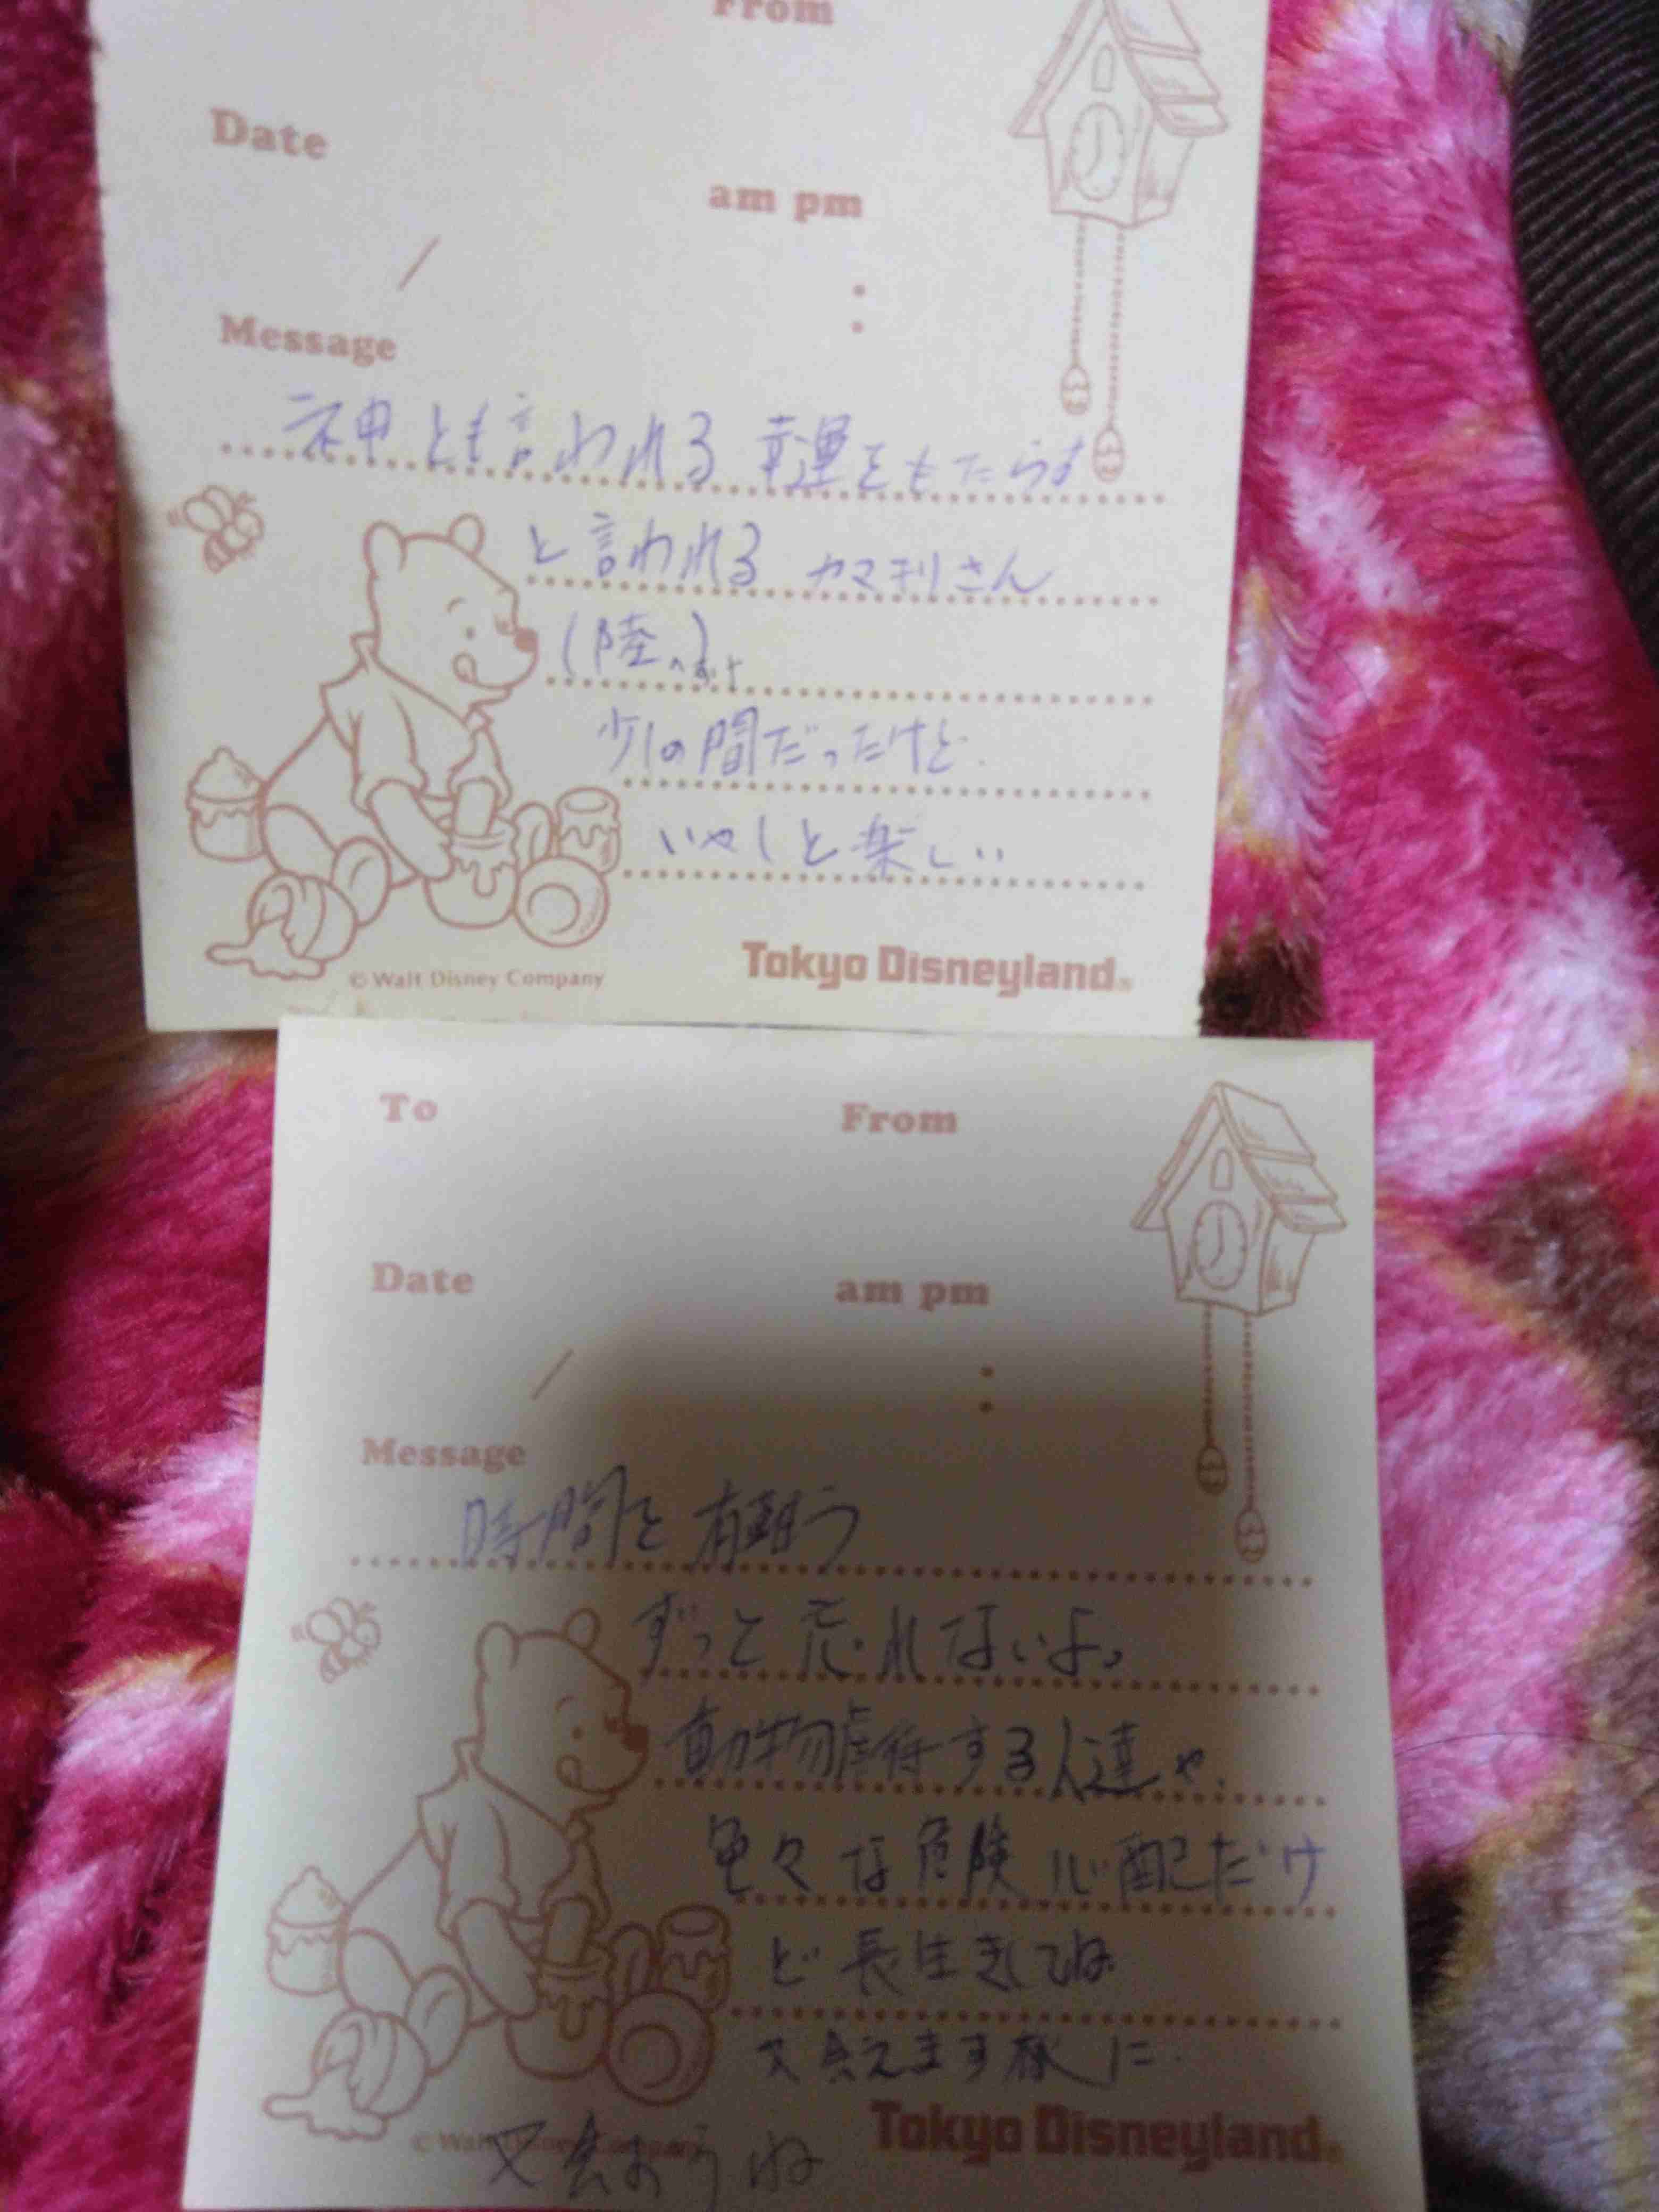 From
Date
am pm
/
:
Message
神とも言われる 幸運をもたらす
と言われる カマキリさん
(陸へ)
少しの間だったけど.
いやしと楽しい
© Walt Disney Company
Tokyo Disneyland®
To
From
Date
am pm
/
:
Message
時間を 有難う
ずっと 忘れないよ。
動物虐待する人達や、
色々な危険 心配だけ
ど 長生きしてね
又会えます様に.
© Walt Disney Company
Tokyo Disneyland®
又会おうね